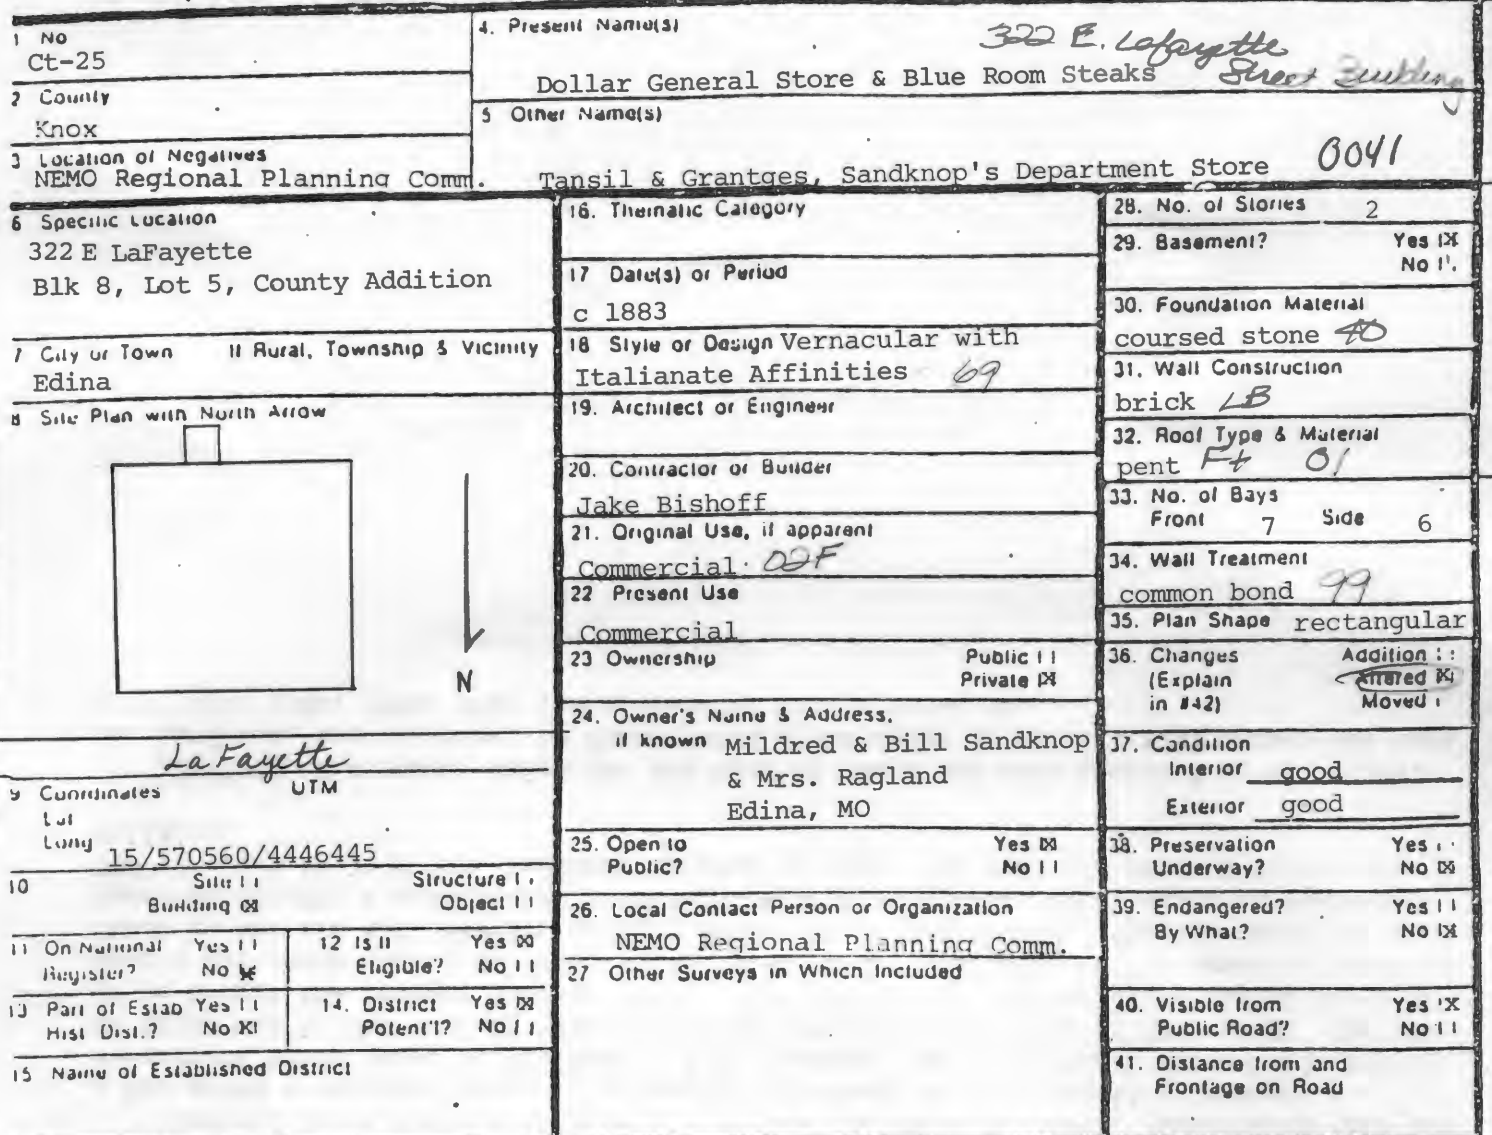 1 No
Ct-25
2 County
Knox
3 Location of Negatives
NEMO Regional Planning Comm.
4. Present Name(s)
322 E. Lafayette
Dollar General Store & Blue Room Steaks Street Building
5 Other Name(s)
0041
Tansil & Grantges, Sandknop's Department Store
6 Specific Location
322 E LaFayette
Blk 8, Lot 5, County Addition
7 City or Town If Rural, Township & Vicinity
Edina
8 Site Plan with North Arrow
N
LaFayette
9 Coordinates UTM
Lat
Long
15/570560/4446445
10 Site Structure
Building [X] Object
11 On National Register? Yes No [X]
12 Is It Eligible? Yes [X] No
13 Part of Estab Hist Dist.? Yes No [X]
14. District Potent'l? Yes [X] No
15 Name of Established District
16. Thematic Category
17 Date(s) or Period
c 1883
18 Style or Design Vernacular with
Italianate Affinities 69
19. Architect or Engineer
20. Contractor or Builder
Jake Bishoff
21. Original Use, if apparent
Commercial 02F
22 Present Use
Commercial
23 Ownership Public
Private [X]
24. Owner's Name & Address,
if known Mildred & Bill Sandknop
& Mrs. Ragland
Edina, MO
25. Open to Yes [X]
Public? No
26. Local Contact Person or Organization
NEMO Regional Planning Comm.
27 Other Surveys in Which Included
28. No. of Stories 2
29. Basement? Yes [X]
No
30. Foundation Material
coursed stone 40
31. Wall Construction
brick LB
32. Roof Type & Material
pent Ft 01
33. No. of Bays
Front 7 Side 6
34. Wall Treatment
common bond 99
35. Plan Shape rectangular
36. Changes Addition
(Explain Altered [X]
in #42) Moved
37. Condition
Interior good
Exterior good
38. Preservation Yes
Underway? No [X]
39. Endangered? Yes
By What? No [X]
40. Visible from Yes [X]
Public Road? No
41. Distance from and
Frontage on Road